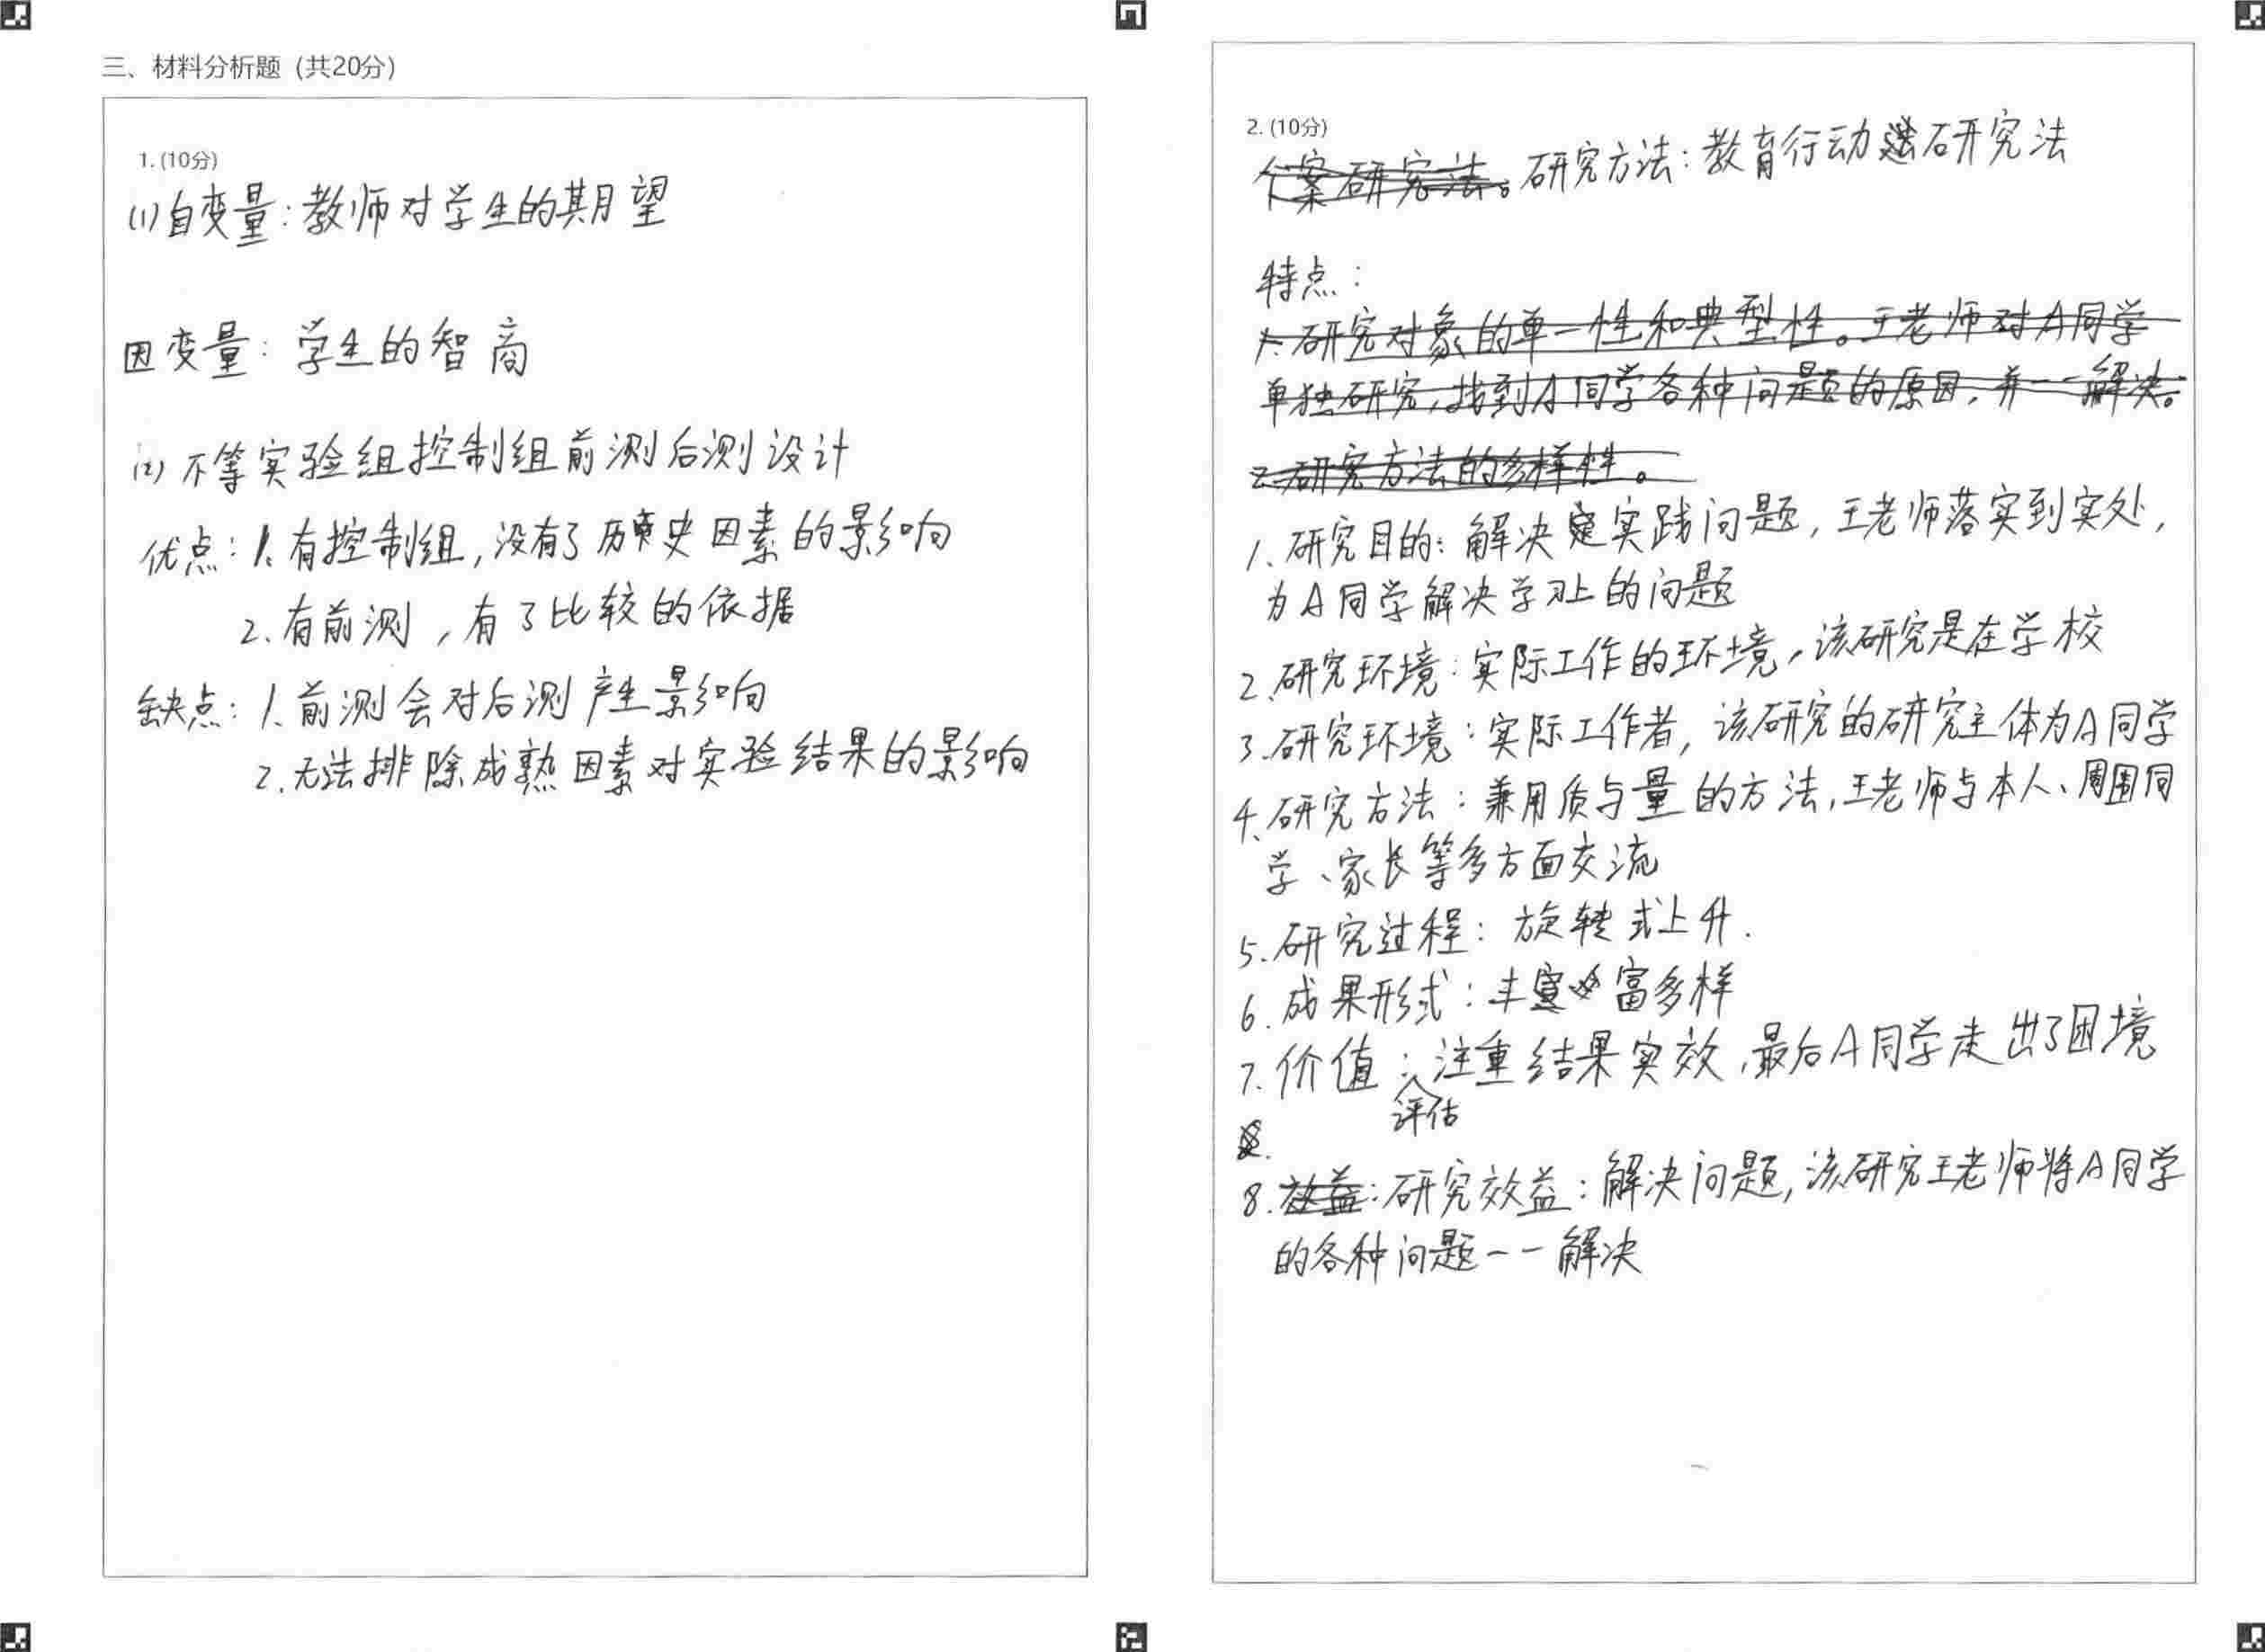 三、材料分析题 (共20分)
1. (10分)
(1)自变量:教师对学生的期望
因变量:学生的智商
(2)不等实验组控制组前测后测设计
优点:1.有控制组,没有了历史因素的影响
2.有前测,有了比较的依据
缺点:1.前测会对后测产生影响
2.无法排除成熟因素对实验结果的影响
2. (10分)
个案研究法。研究方法:教育行动研究法
特点:
1.研究对象的单一性和典型性。王老师对A同学
单独研究,找到A同学各种问题的原因,并一一解决。
2.研究方法的多样性。
1.研究目的:解决实践问题,王老师落实到实处,
为A同学解决学习上的问题
2.研究环境:实际工作的环境,该研究是在学校
3.研究环境:实际工作者,该研究的研究主体为A同学
4.研究方法:兼用质与量的方法,王老师与本人、周围同
学、家长等多方面交流
5.研究过程:旋转式上升.
6.成果形式:丰富多样
7.价值评估:注重结果实效,最后A同学走出了困境
8.效益:研究效益:解决问题,该研究王老师将A同学
的各种问题一一解决